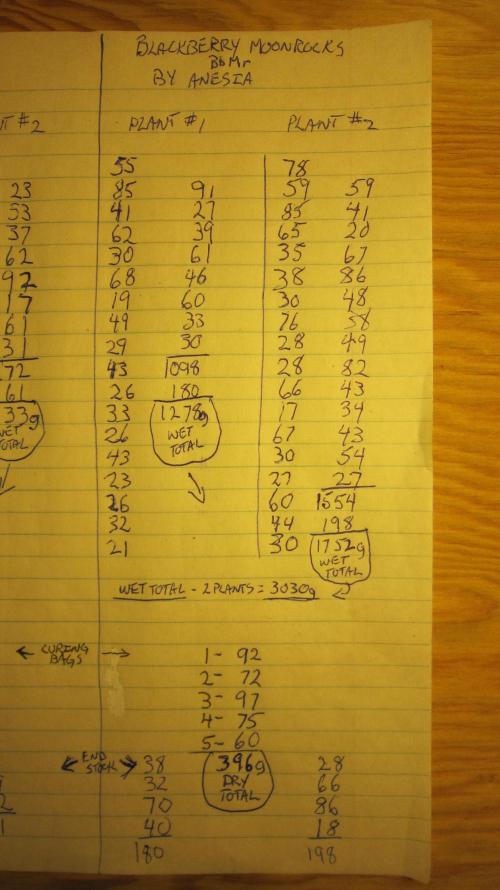 BLACKBERRY MOONROCKS
BbMr
BY ANESIA
T #2
PLANT #1
PLANT #2
55 78
23 85 91 59 59
53 41 27 85 41
37 62 39 65 20
62 30 61 35 67
92 68 46 38 86
17 19 60 30 48
61 49 33 76 58
31 29 30 28 49
72 43 1098 28 82
61 26 180 66 43
33g 33 1278g 17 34
WET 26 WET 67 43
TOTAL 43 TOTAL 30 54
23 27 27
26 60 1554
32 44 198
21 30 1752g
WET
TOTAL
WET TOTAL - 2 PLANTS = 3030g
CURING
BAGS
1- 92
2- 72
3- 97
4- 75
5- 60
END
STOCK
38 396g 28
32 DRY 66
2 70 TOTAL 86
1 40 18
180 198